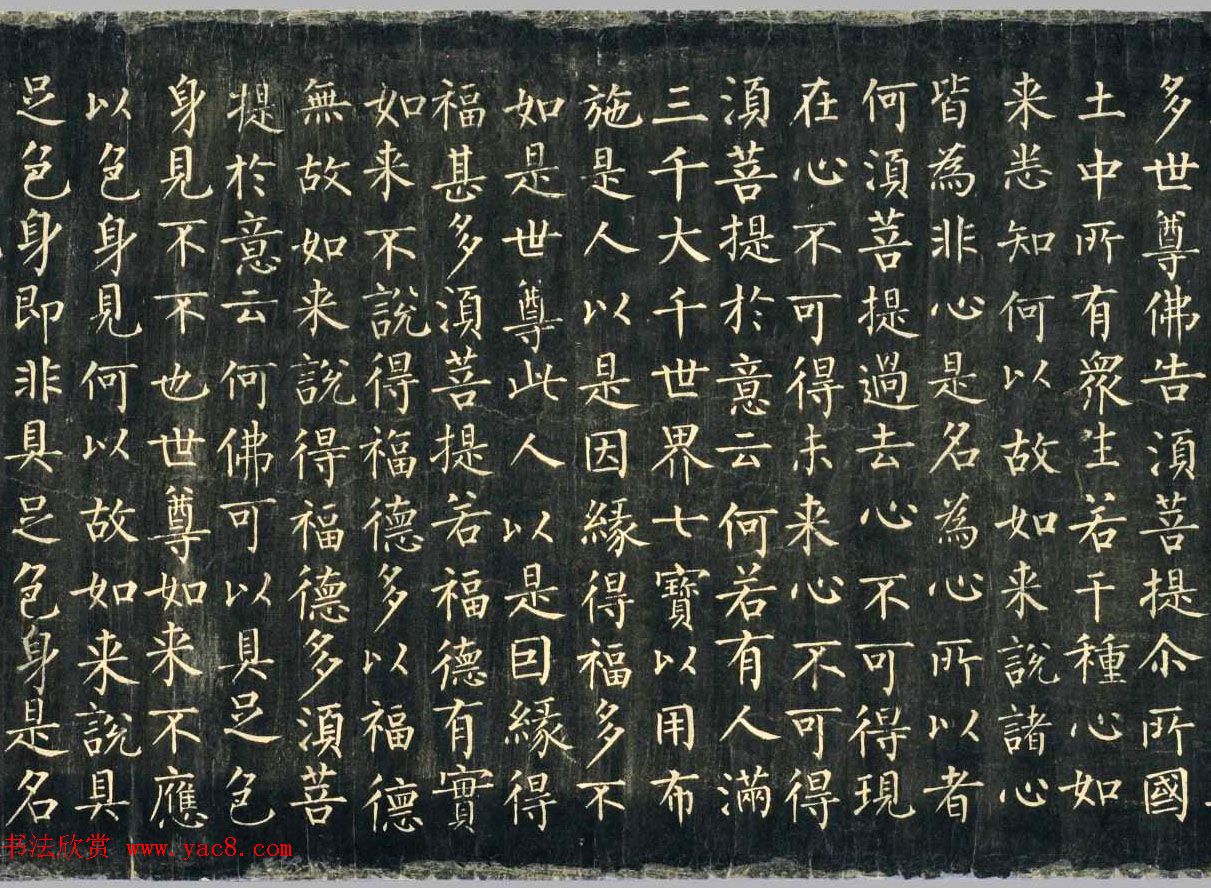 多世尊佛告湏菩提尒所國
土中所有衆生若干種心如
来悉知何以故如来說諸心
皆為非心是名為心所以者
何湏菩提過去心不可得現
在心不可得未来心不可得
湏菩提於意云何若有人滿
三千大千世界七寶以用布
施是人以是因緣得福多不
如是世尊此人以是囙緣得
福甚多湏菩提若福德有實
如来不說得福德多以福德
無故如来說得福德多湏菩
提於意云何佛可以具足色
身見不不也世尊如来不應
以色身見何以故如来說具
足色身即非具足色身是名
书法欣赏 www.yac8.com